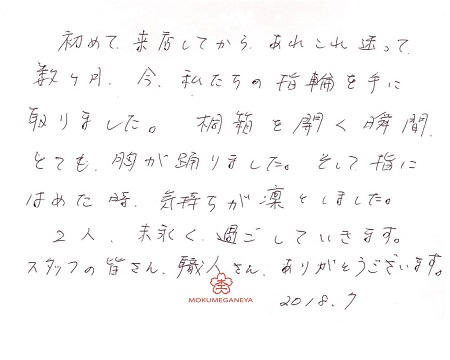 初めて、来店してから、あれこれ迷って、
数ヶ月、今、私たちの指輪を手に
取りました。桐箱を開く瞬間、
とても、胸が踊りました。そして指に
はめた時、気持ちが凛としました。
2人、末永く、過ごしていきます。
スタッフの皆さん、職人さん、ありがとうございます。
MOKUMEGANEYA
2018.7